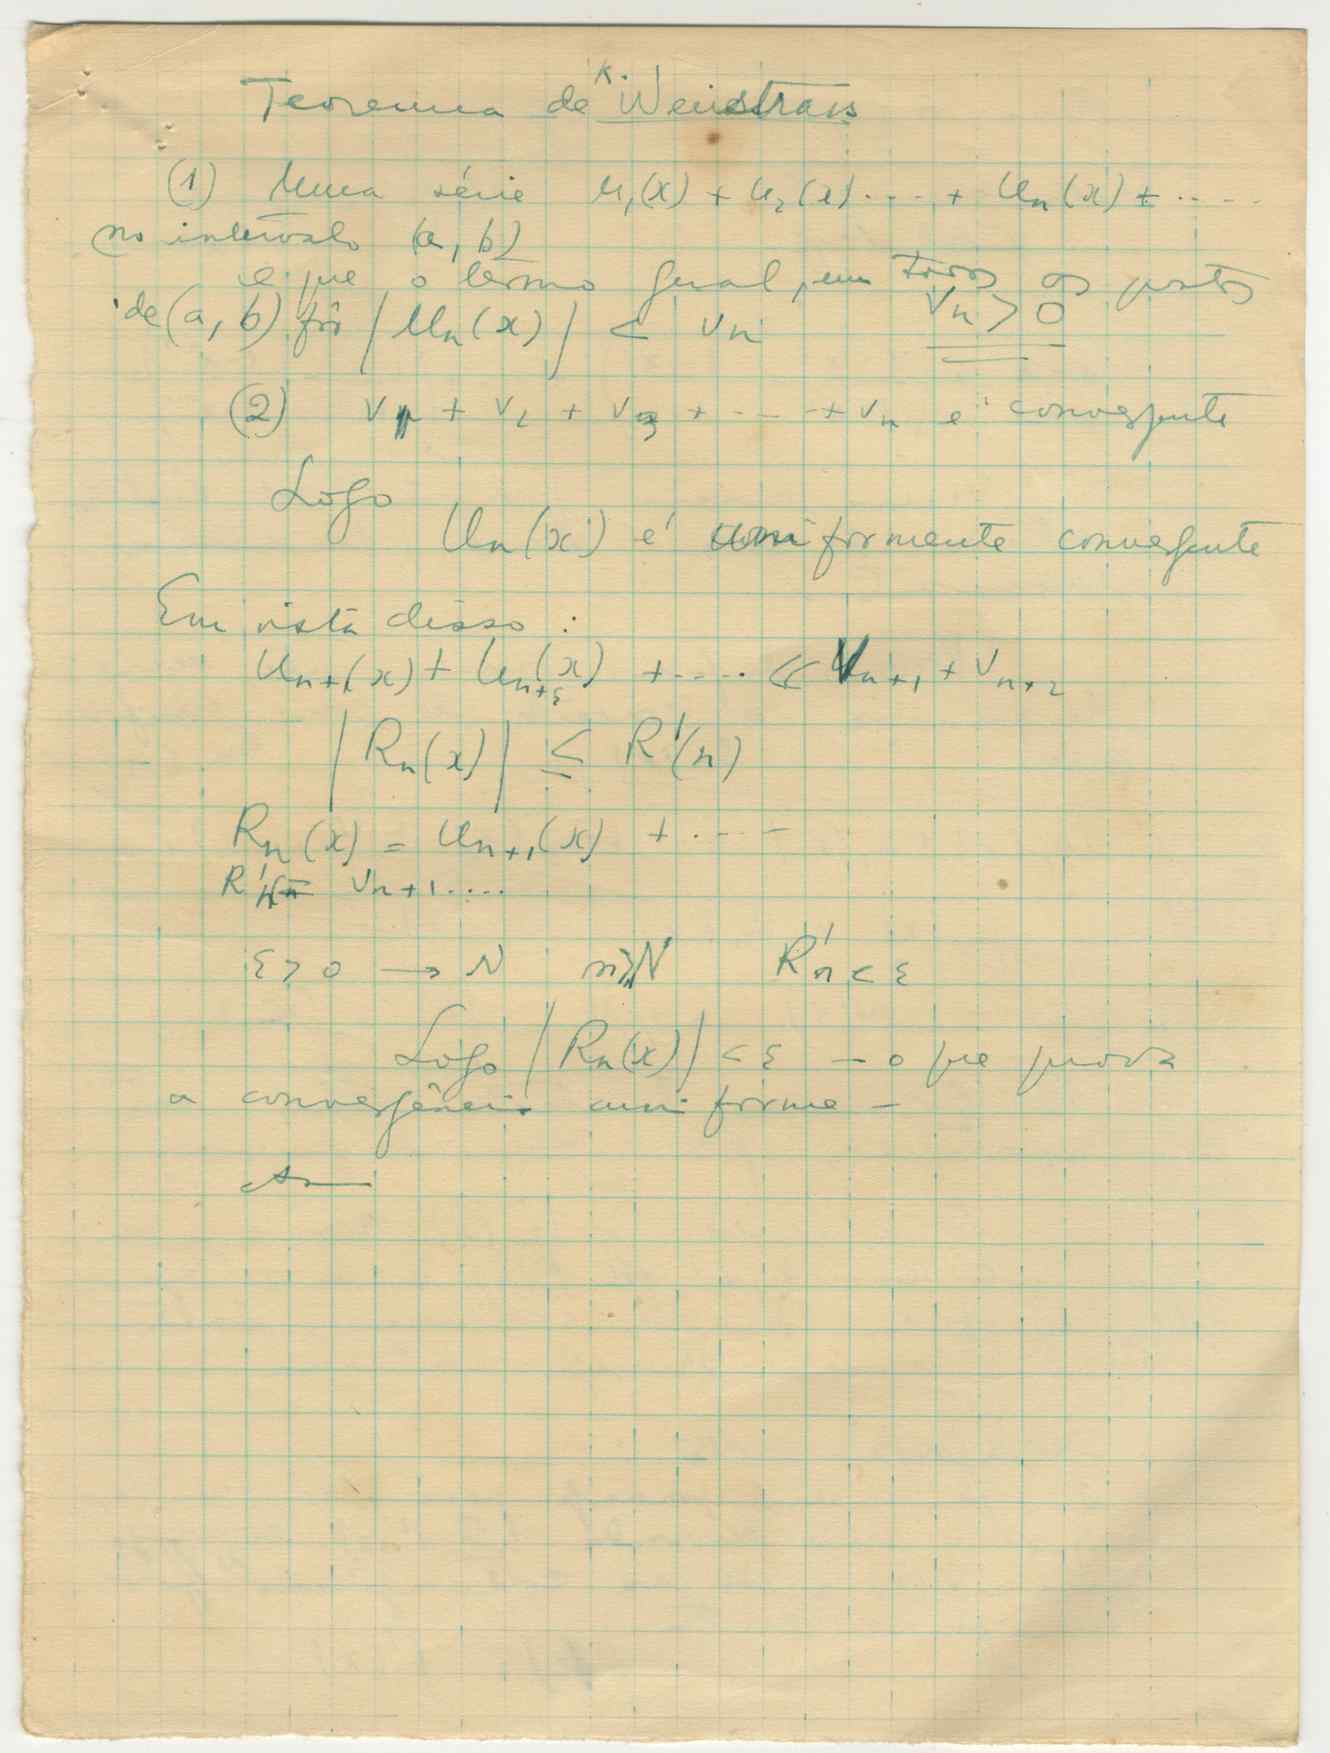 Teorema de K. Weistrass
(1) Numa série u₁(x) + u₂(x) .... + uₙ(x) + .....
no intervalo (a, b)
e que o termo geral, em todos os pontos
de (a, b) fôr |uₙ(x)| < vₙ vₙ > 0
(2) v₁ + v₂ + v₃ + .... + vₙ é convergente
Logo
uₙ(x) é uniformemente convergente
Em vista disso :
uₙ₊₁(x) + uₙ₊₂(x) + ..... ≤ vₙ₊₁ + vₙ₊₂
|Rₙ(x)| ≤ R'(n)
Rₙ(x) = uₙ₊₁(x) + ....
R'ₙ = vₙ₊₁ ....
ε > 0 → N n ≥ N R'ₙ < ε
Logo |Rₙ(x)| < ε – o que prova
a convergência uniforme –